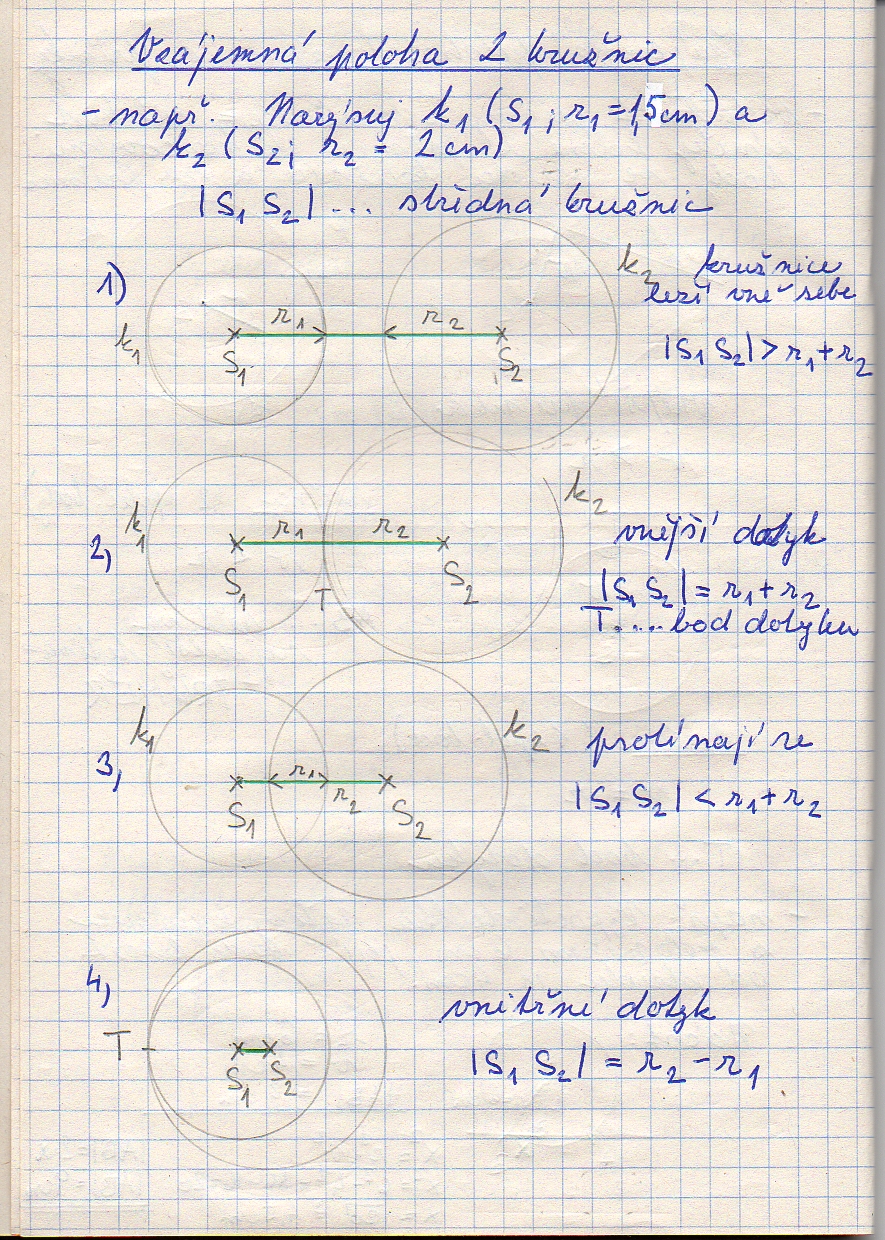 Vzájemná poloha 2 kružnic
- např. Narýsuj k₁ (S₁; r₁ = 1,5 cm) a
k₂ (S₂; r₂ = 2 cm)
|S₁ S₂| ... středná kružnic
1) k₁ S₁ r₁ r₂ S₂ k₂
kružnice
leží vně sebe
|S₁ S₂| > r₁ + r₂
2, k₁ S₁ r₁ T r₂ S₂ k₂
vnější dotyk
|S₁ S₂| = r₁ + r₂
T .... bod dotyku
3, k₁ S₁ r₁ r₂ S₂ k₂
protínají se
|S₁ S₂| < r₁ + r₂
4, T S₁ S₂
vnitřní dotyk
|S₁ S₂| = r₂ - r₁